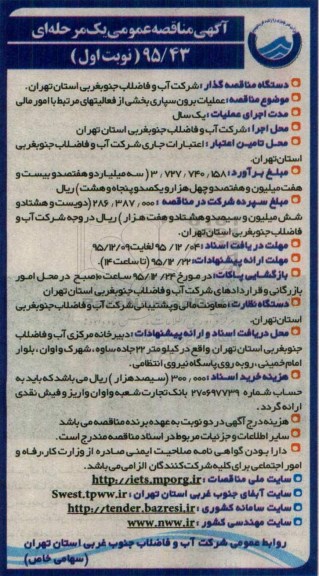 آگهی مناقصه عمومی یک مرحله ای
۹۵/۴۳ (نوبت اول)
دستگاه مناقصه گذار : شرکت آب و فاضلاب جنوبغربی استان تهران.
موضوع مناقصه : عملیات برون سپاری بخشی از فعالیتهای مرتبط با امور مالی
مدت اجرای عملیات : یک سال
محل اجرا : شرکت آب و فاضلاب جنوبغربی استان تهران
محل تامین اعتبار : اعتبارات جاری شرکت آب و فاضلاب جنوبغربی
استان تهران.
مبلغ برآورد : ۳،۷۲۷،۷۴۰،۱۵۸ (سه میلیارد و هفتصد و بیست و
هفت میلیون و هفتصد و چهل هزار و یکصد و پنجاه و هشت) ریال
مبلغ سپرده شرکت در مناقصه : ۲۸۶،۳۸۷،۰۰۰ (دویست و هشتاد و
شش میلیون و سیصد و هشتاد و هفت هزار) ریال در وجه شرکت آب و
فاضلاب جنوبغربی استان تهران.
مهلت دریافت اسناد : ۹۵/۱۲/۰۳ لغایت ۹۵/۱۲/۰۹
مهلت ارائه پیشنهادات : ۹۵/۱۲/۲۲ (تا ساعت ۱۴)
بازگشایی پاکات : در مورخ ۹۵/۱۲/۲۴ ساعت ۱۰ صبح در محل امور
بازرگانی و قراردادهای شرکت آب و فاضلاب جنوبغربی استان تهران
دستگاه نظارت : معاونت مالی و پشتیبانی شرکت آب و فاضلاب جنوبغربی
استان تهران.
محل دریافت اسناد و ارائه پیشنهادات : دبیرخانه مرکزی آب و فاضلاب
جنوبغربی استان تهران واقع در کیلومتر ۲۲ جاده ساوه، شهرک واوان، بلوار
امام خمینی، روبه روی پاسگاه نیروی انتظامی.
هزینه خرید اسناد : ۳۰۰،۰۰۰ (سیصد هزار) ریال می باشد که باید به
حساب شماره ۲۷۰۶۹۷۷۳۹ بانک تجارت شعبه واوان واریز و فیش نقدی
ارائه گردد.
هزینه درج آگهی در دو نوبت به عهده برنده مناقصه می باشد
سایر اطلاعات و جزئیات مربوط در اسناد مناقصه مندرج است.
دارا بودن گواهی نامه صلاحیت ایمنی صادره از وزارت کار، رفاه و
امور اجتماعی برای کلیه شرکت کنندگان الزامی می باشد.
سایت ملی مناقصات : http://iets.mporg.ir
سایت آبفای جنوب غربی استان تهران : Swest.tpww.ir
سایت سامانه کشوری : http://tender.bazresi.ir
سایت مهندسی کشور : www.nww.ir
روابط عمومی شرکت آب و فاضلاب جنوب غربی استان تهران
(سهامی خاص)